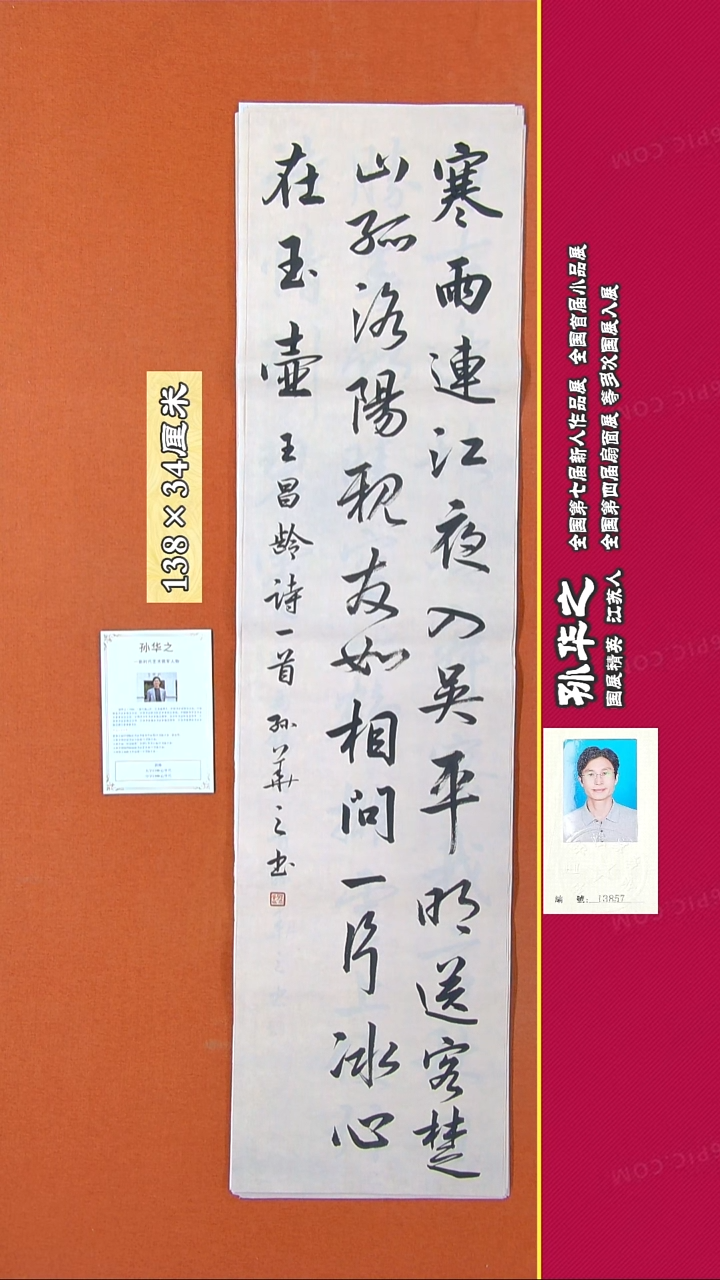 寒雨連江夜入吳平明送客楚
山孤洛陽親友如相問一片冰心
在玉壺 王昌龄詩一首 孙華之书
138×34厘米
孙华之
孙华之
国展精英 江苏人
全国第七届新人作品展 全国首届小品展
全国第四届扇面展 等多次国展入展
編 號: 13857